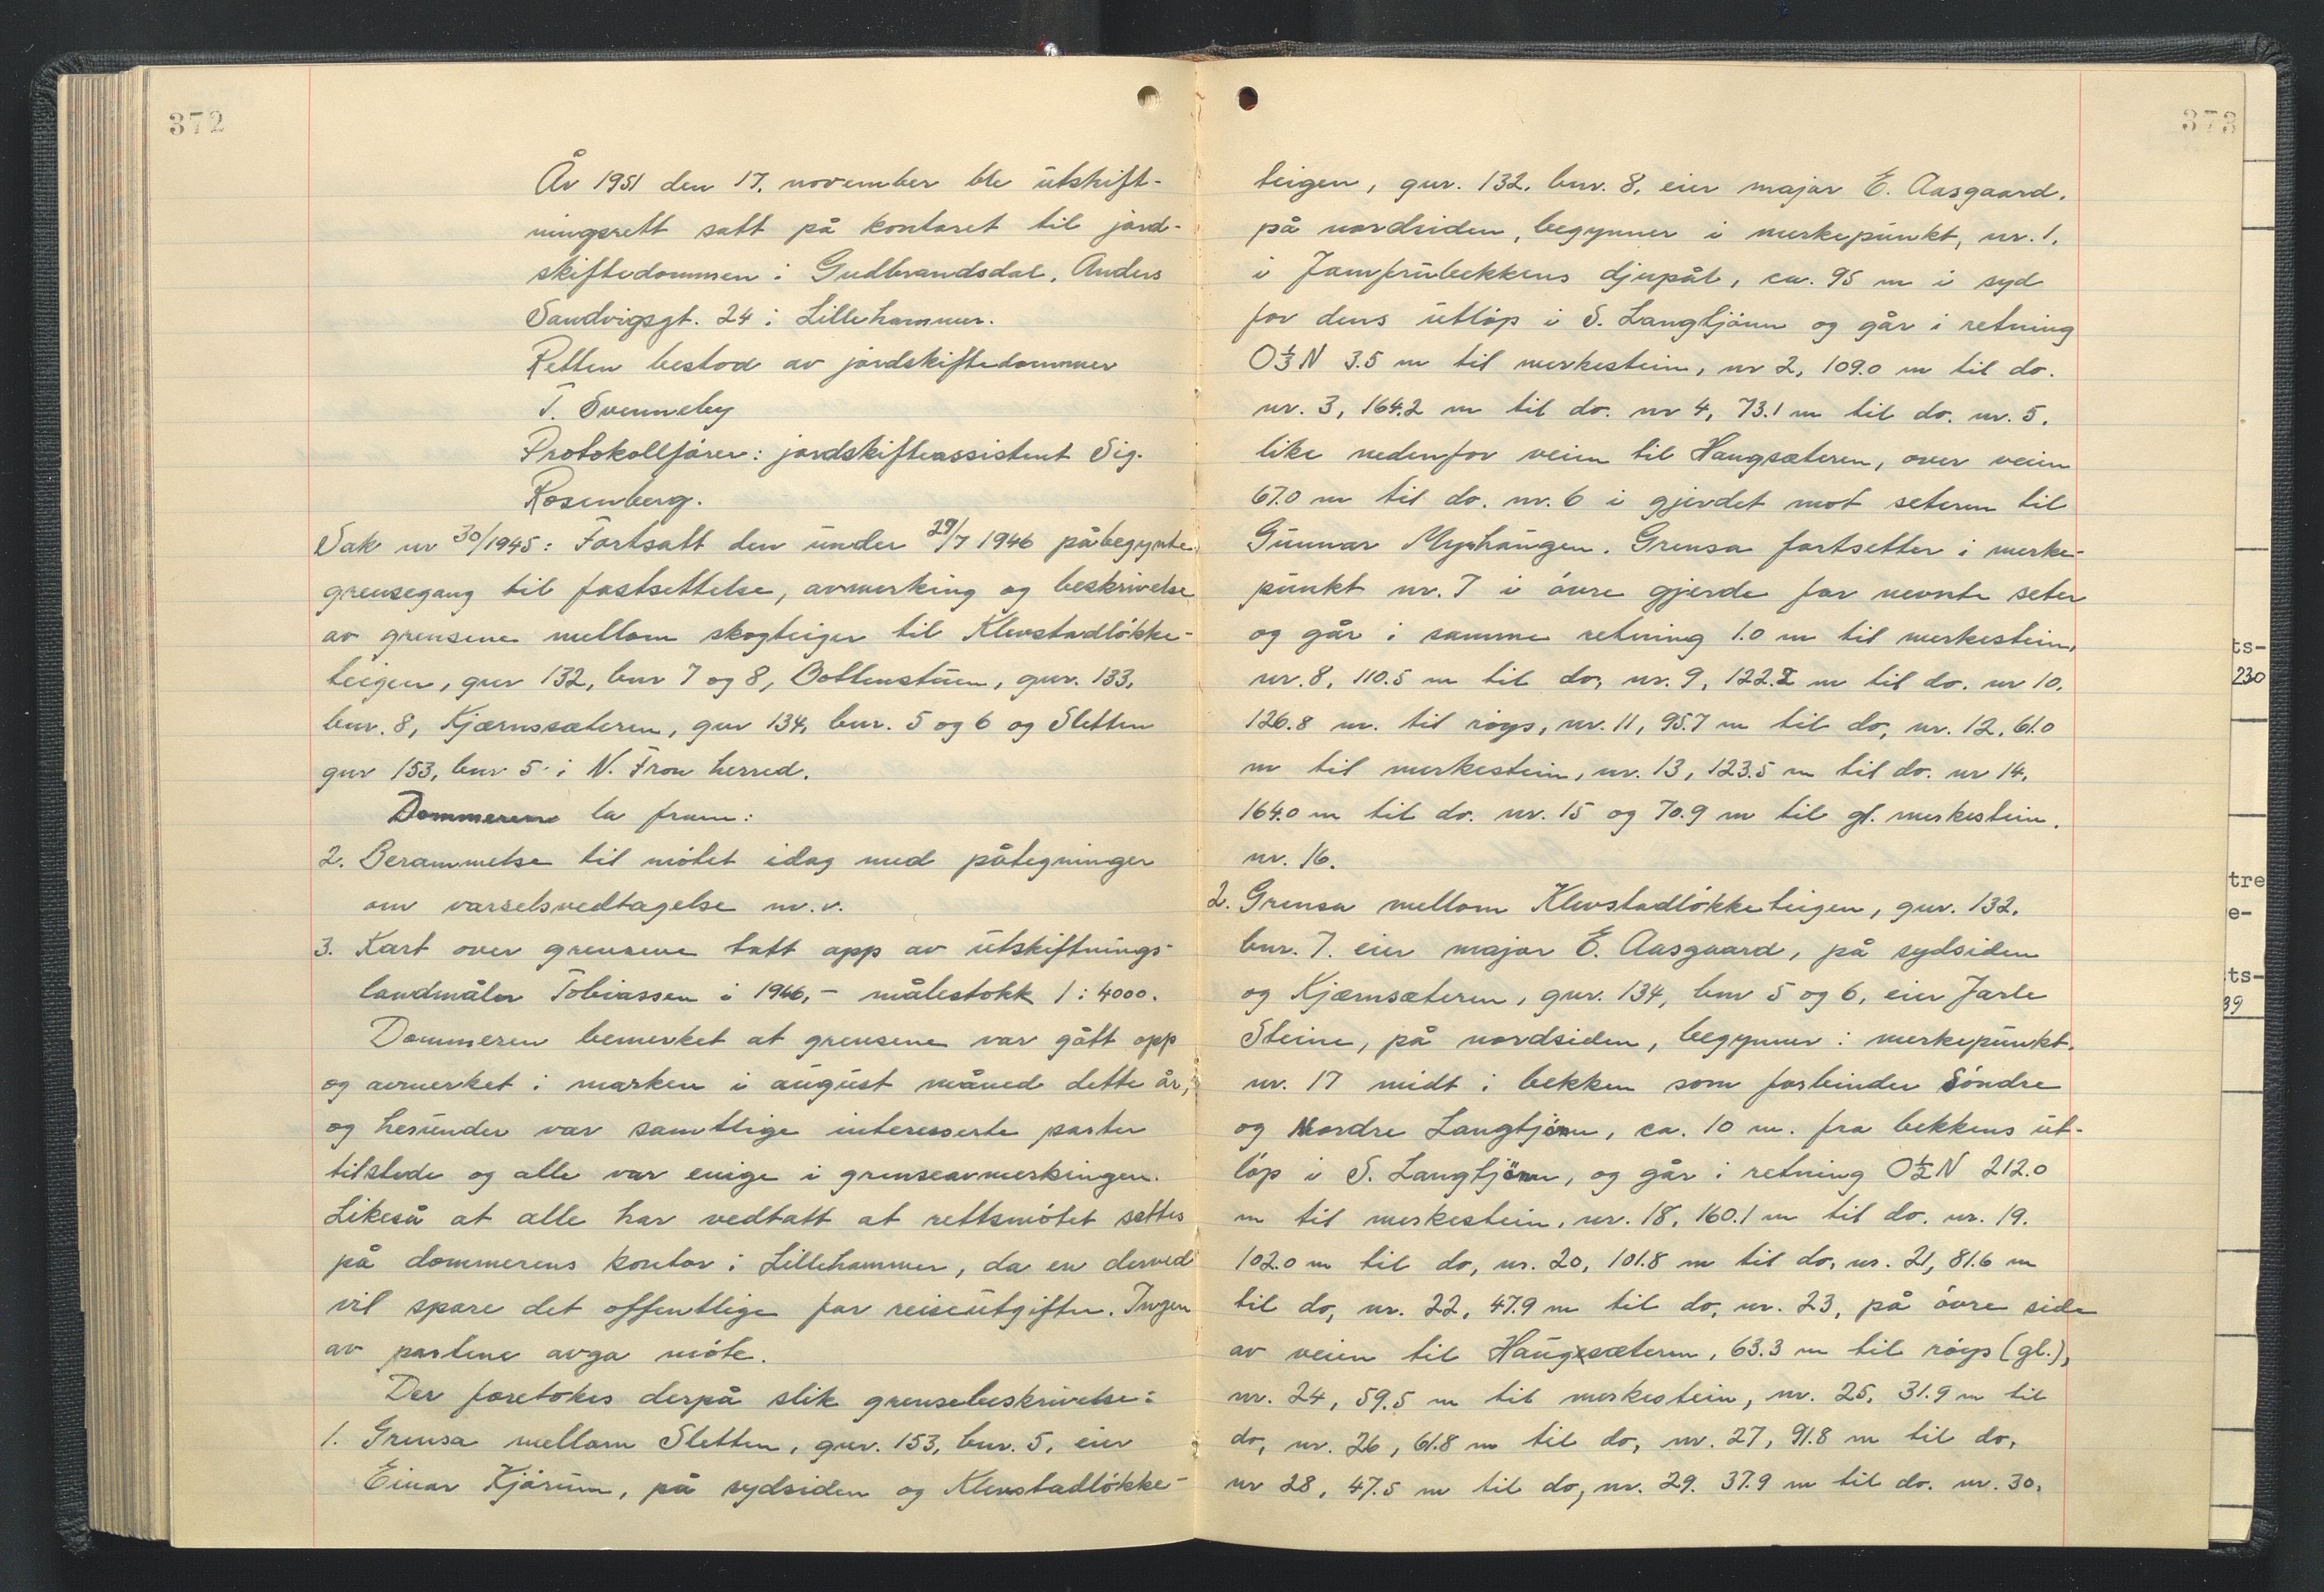 372
År 1951 den 17. november ble utskift-
ningsrett satt på kontoret til jord-
skiftedommeren i Gudbrandsdal, Anders
Sandvigsgt. 24 i Lillehammer.
Retten bestod av jordskiftedommer
T. Svenneby
Protokollfører: jordskifteassistent Sig.
Rosenberg.
Sak nr 30/1945: Fortsatt den under 29/7 1946 påbegynte
grensegang til fastsettelse, avmerking og beskrivelse
av grensene mellom skogteiger til Klevstadløkke-
teigen, gnr 132, bnr 7 og 8, Bottenstuen, gnr. 133,
bnr. 8, Kjærnssæteren, gnr 134, bnr. 5 og 6 og Sletten
gnr 153, bnr 5 i N. Fron herred.
Dommeren la fram:
2. Berammelse til møtet idag med påtegninger
om varselsvedtagelse m.v.
3. Kart over grensene tatt opp av utskiftnings-
landmåler Tobiassen i 1946, - målestokk 1:4000.
Dommeren bemerket at grensene var gått opp
og avmerket i marken i august måned dette år,
og herunder var samtlige interesserte parter
tilstede og alle var enige i grenseavmerkingen.
Likeså at alle har vedtatt at rettsmøtet settes
på dommerens kontor i Lillehammer, da en derved
vil spare det offentlige for reiseutgifter. Ingen
av partene avga møte.
Der foretokes derpå slik grensebeskrivelse:
1. Grensa mellom Sletten, gnr. 153, bnr. 5, eier
Einar Kjørum, på sydsiden og Klevstadløkke-
373
teigen, gnr. 132, bnr. 8, eier major E. Aasgaard,
på nordsiden, begynner i merkepunkt, nr. 1,
i Jomfrubekkens djupål, ca. 95 m i syd
for dens utløp i S. Langtjønn og går i retning
O⅓N 3.5 m til merkestein, nr 2, 109.0 m til do.
nr. 3, 164.2 m til do. nr 4, 73.1 m til do. nr. 5,
like nedenfor veien til Haugsæteren, over veien
67.0 m til do. nr. 6 i gjerdet mot seteren til
Gunnar Myrhaugen. Grensa fortsetter i merke-
punkt nr. 7 i øvre gjerde for nevnte seter
og går i samme retning 1.0 m til merkestein,
nr. 8, 110.5 m til do, nr. 9, 122.2 m til do. nr 10,
126.8 m. til røys, nr. 11, 95.7 m til do, nr. 12, 61.0
m til merkestein, nr. 13, 123.5 m til do. nr 14,
164.0 m til do. nr. 15 og 70.9 m til gl. merkestein,
nr. 16.
2. Grensa mellom Klevstadløkketeigen, gnr. 132,
bnr. 7, eier major E. Aasgaard, på sydsiden
og Kjærnsæteren, gnr. 134, bnr 5 og 6, eier Jarle
Steine, på nordsiden, begynner i merkepunkt,
nr. 17 midt i bekken som forbinder Søndre
og Nordre Langtjønn, ca. 10 m. fra bekkens ut-
løp i S. Langtjønn, og går i retning O½N 212.0
m til merkestein, nr. 18, 160.1 m til do. nr. 19.
102.0 m til do, nr. 20, 101.8 m til do, nr. 21, 81.6 m
til do, nr. 22, 47.9 m til do, nr. 23, på øvre side
av veien til Haugsæteren, 63.3 m til røys (gl.),
nr. 24, 59.5 m til merkestein, nr. 25, 31.9 m til
do, nr. 26, 61.8 m til do, nr. 27, 91.8 m til do,
nr 28, 47.5 m til do, nr. 29. 37.9 m til do. nr. 30,
ts-
230
tre
e-
ts-
39